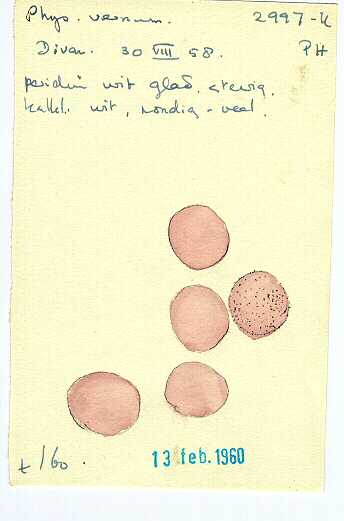 Phys. vernum. 2997-K
Divan. 30 VIII 58. PH
peridium wit glad, stevig.
kalkk. wit, rondig - veel.
t/60.
13 feb. 1960